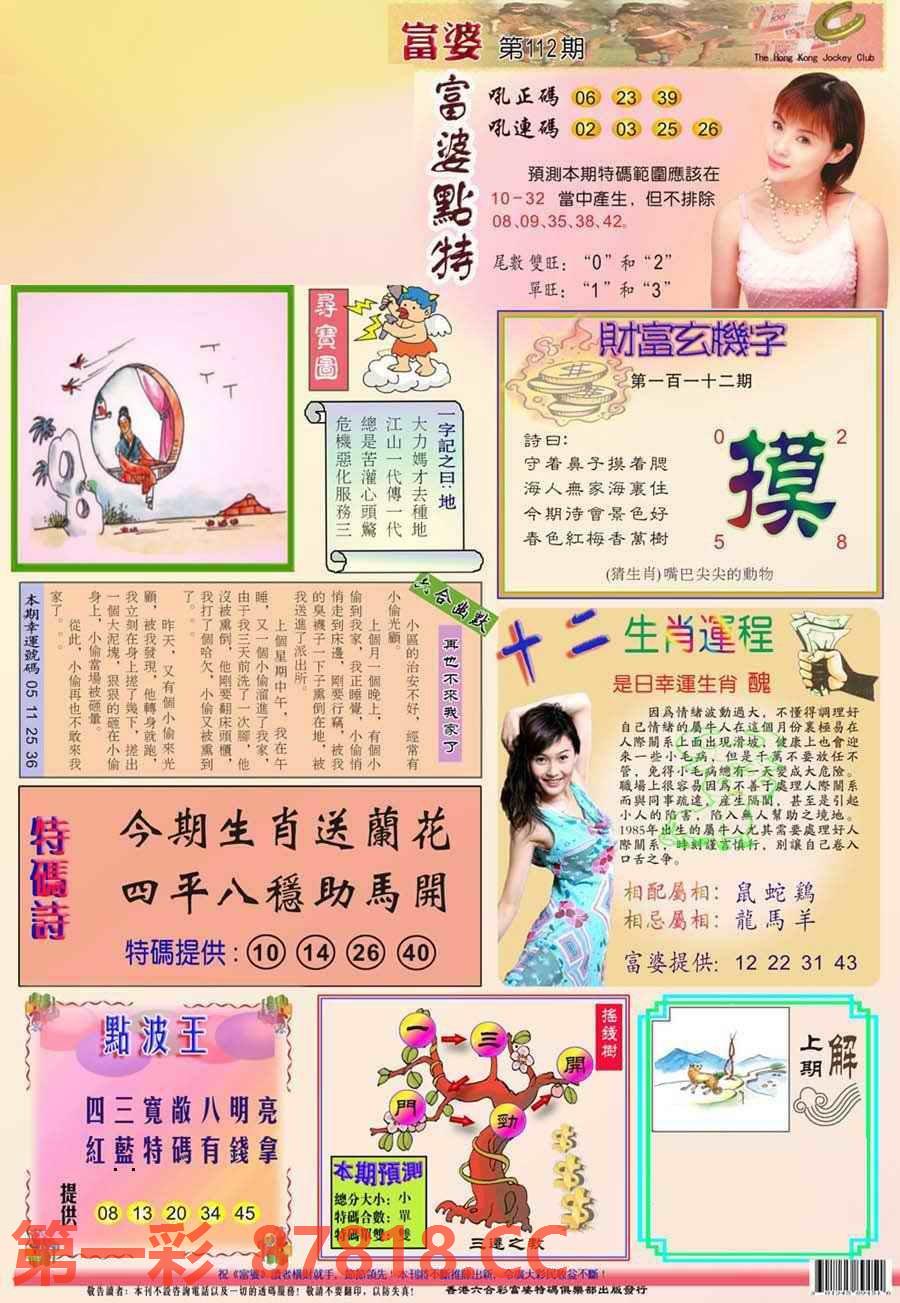 富婆 第112期
The Hong Kong Jockey Club
富婆點特
吼正碼 06 23 39
吼連碼 02 03 25 26
預測本期特碼範圍應該在
10-32 當中產生，但不排除
08、09、35、38、42。
尾數雙旺：“0”和“2”
單旺：“1”和“3”
尋寶圖
一字記之曰：地
大力媽才去種地
江山一代傳一代
總是苦灌心頭驚
危機惡化服務三
財富玄機字
第一百一十二期
詩曰：
守着鼻子摸着腮
海人無家海裏住
今期待會景色好
春色紅梅香萬樹
0 2
摸
5 8
(猜生肖)嘴巴尖尖的動物
六合幽默
再也不來我家了
小區的治安不好，經常有
小偷光顧。
上個月一個晚上，有個小
偷到我家，我正睡覺，小偷悄
悄走到床邊，剛要行竊，被我
的臭襪子一下子熏倒在地，被
我送進了派出所。
上個星期中午，我在午
睡，又一個小偷溜進了我家，
由于我三天前洗了一次腳，他
沒被熏倒，他剛要翻床頭櫃，
我打了個哈欠，小偷又被熏到
了。。
昨天，又有個小偷來光
顧，被我發現，他轉身就跑，
我立刻在身上搓了幾下，搓出
一個大泥塊，狠狠的砸在小偷
身上，小偷當場被砸暈。
從此，小偷再也不敢來我
家了。。。
本期幸運號碼 05 11 25 36
十二生肖運程
是日幸運生肖 醜
因爲情緒波動過大，不懂得調理好
自己情緒的屬牛人在這個月份裏極易在
人際關系上面出現滑坡，健康上也會迎
來一些小毛病，但是千萬不要放任不
管，免得小毛病總有一天變成大危險。
職場上很容易因爲不善于處理人際關系
而與同事疏遠，産生隔閡，甚至是引起
小人的陷害，陷入無人幫助之境地。
1985年出生的屬牛人尤其需要處理好人
際關系，時刻謹言慎行，別讓自己卷入
口舌之争。
相配屬相：鼠 蛇 鷄
相忌屬相：龍 馬 羊
富婆提供：12 22 31 43
特碼詩
今期生肖送蘭花
四平八穩助馬開
特碼提供：10 14 26 40
點波王
四三寬敞八明亮
紅藍特碼有錢拿
提供 08 13 20 34 45
搖錢樹
一 三 開
門 勁
本期預測
總分大小：小
特碼合數：單
特碼單雙：雙
三遷之數
上期解
第一彩 87818.CC
敬告讀者：本刊不設咨詢電話以及一切的透碼服務！敬請不要翻印，以防失真！
香港六合彩富婆特碼俱樂部出版發行